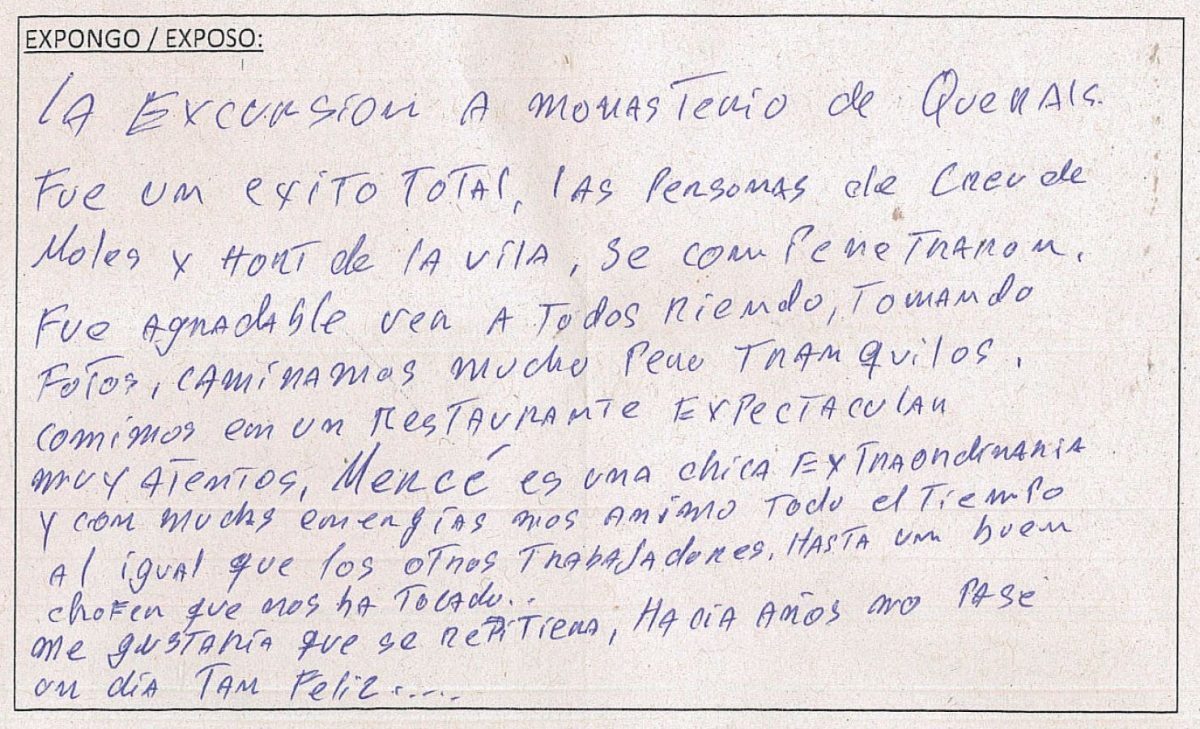 EXPONGO / EXPOSO:
LA EXCURSION A MONASTERIO de QUERALS.
FUE UN EXITO TOTAL, LAS PERSONAS de CREU de
Moles Y HORT de LA VILA, Se COMPENETRARON.
FUE AGRADABLE VER A TODOS RIENDO, TOMANDO
FOTOS, CAMINAMOS MUCHO PERO TRANQUILOS.
COMIMOS EN UN RESTAURANTE EXPECTACULAR
MUY ATENTOS, MERCÉ es UNA CHICA EXTRAORDINARIA
Y CON MUCHAS ENERGÍAS NOS ANIMO TODO el TIEMPO
AL IGUAL QUE LOS OTROS TRABAJADORES. HASTA UN BUEN
CHOFER QUE NOS HA TOCADO..
ME GUSTARÍA QUE SE REPITIERA, HACIA AÑOS NO PASÉ
UN DÍA TAN FELIZ.....